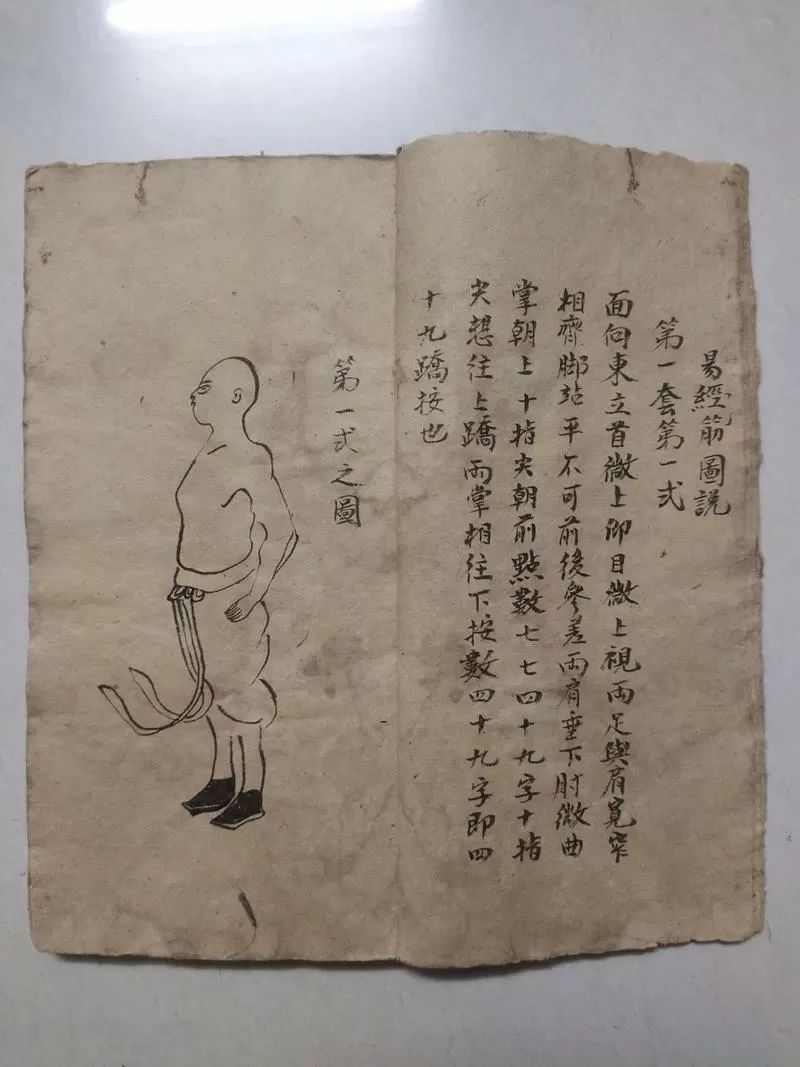 易經筋圖説
第一套第一式
面向東立首微上仰目微上視兩足與肩寬窄
相齊脚站平不可前後參差兩肩垂下肘微曲
掌朝上十指尖朝前點數七七四十九字十指
尖想往上蹻兩掌相往下按數四十九字即四
十九蹻按也
第一式之圖